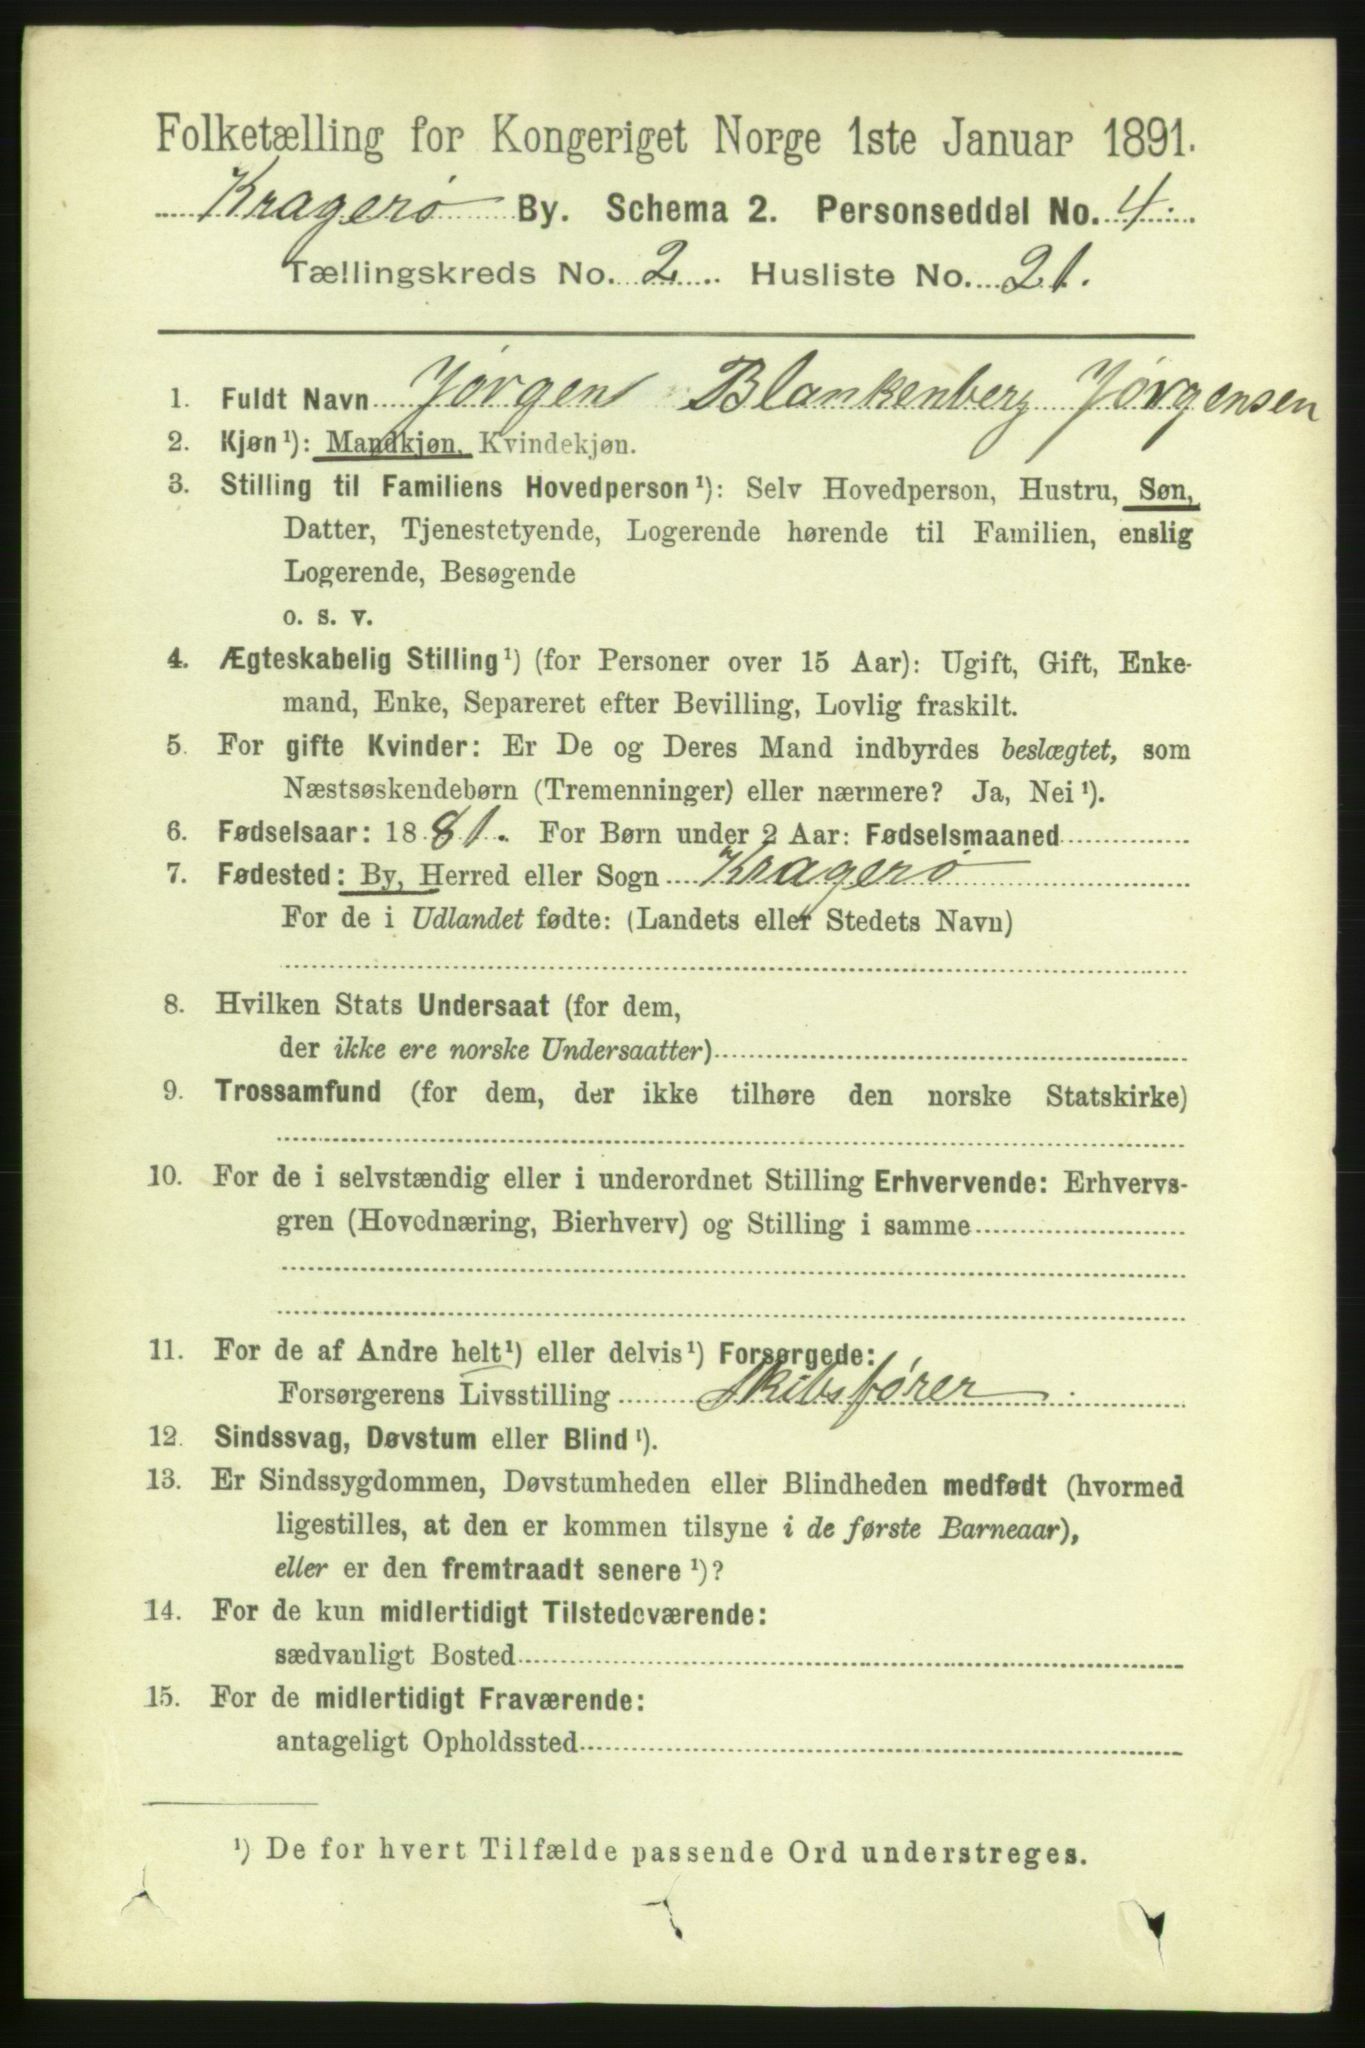 Folketælling for Kongeriget Norge 1ste Januar 1891.
Kragerø By. Schema 2. Personseddel No. 4.
Tællingskreds No. 2. Husliste No. 21.
1. Fuldt Navn Jørgen Blankenberg Jørgensen
2. Kjøn¹): Mandkjøn, Kvindekjøn.
3. Stilling til Familiens Hovedperson¹): Selv Hovedperson, Hustru, Søn,
Datter, Tjenestetyende, Logerende hørende til Familien, enslig
Logerende, Besøgende
o. s. v.
4. Ægteskabelig Stilling¹) (for Personer over 15 Aar): Ugift, Gift, Enke-
mand, Enke, Separeret efter Bevilling, Lovlig fraskilt.
5. For gifte Kvinder: Er De og Deres Mand indbyrdes beslægtet, som
Næstsøskendebørn (Tremenninger) eller nærmere? Ja, Nei¹).
6. Fødselsaar: 1881. For Børn under 2 Aar: Fødselsmaaned
7. Fødested: By, Herred eller Sogn Kragerø
For de i Udlandet fødte: (Landets eller Stedets Navn)
8. Hvilken Stats Undersaat (for dem,
der ikke ere norske Undersaatter)
9. Trossamfund (for dem, der ikke tilhøre den norske Statskirke)
10. For de i selvstændig eller i underordnet Stilling Erhvervende: Erhvervs-
gren (Hovednæring, Bierhverv) og Stilling i samme
11. For de af Andre helt¹) eller delvis¹) Forsørgede:
Forsørgerens Livsstilling Skibsfører
12. Sindssvag, Døvstum eller Blind¹).
13. Er Sindssygdommen, Døvstumheden eller Blindheden medfødt (hvormed
ligestilles, at den er kommen tilsyne i de første Barneaar),
eller er den fremtraadt senere¹)?
14. For de kun midlertidigt Tilstedeværende:
sædvanligt Bosted
15. For de midlertidigt Fraværende:
antageligt Opholdssted
¹) De for hvert Tilfælde passende Ord understreges.